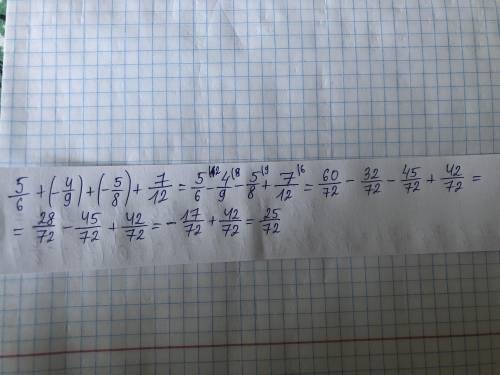 5/6 + (-4/9) + (-5/8) + 7/12 = 5/6^(12 - 4/9^(8 - 5/8^(9 + 7/12^(6 = 60/72 - 32/72 - 45/72 + 42/72 =
= 28/72 - 45/72 + 42/72 = - 17/72 + 42/72 = 25/72